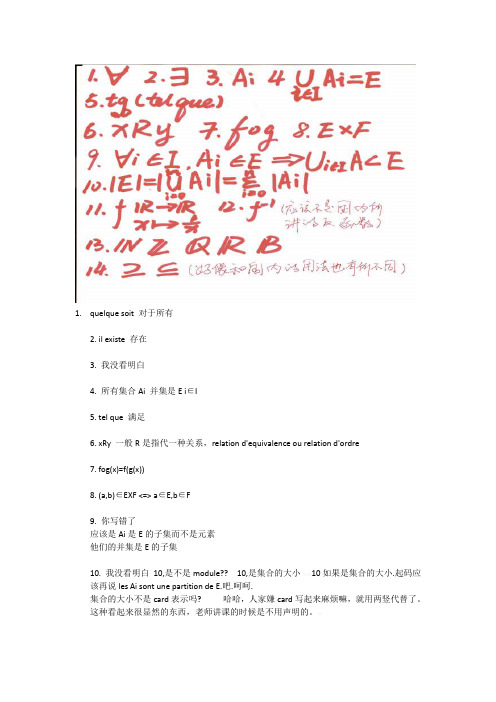 1. ∀ 2. ∃ 3. Ai 4 ⋃ Ai=E
i∈I
5. tq (tel que)
6. xRy 7. fog 8. E×F
9. ∀i∈I, Ai∈E ⟹ Ui∈I A⊂E
10. |E|=|⋃ Ai|=Σ |Ai|
i=0 i=0
11. f ℝ→ℝ 12. f⁻¹ (应该不是国内所
x↦ 讲的反函数)
13. ℕ ℤ ℚ ℝ B
14. ⊇ ⊆ (好像和国内的用法也有所不同)
1. quelque soit 对于所有
2. il existe 存在
3. 我没看明白
4. 所有集合 Ai 并集是 E i∈I
5. tel que 满足
6. xRy 一般 R 是指代一种关系，relation d'equivalence ou relation d'ordre
7. fog(x)=f(g(x))
8. (a,b)∈EXF <=> a∈E,b∈F
9. 你写错了
应该是 Ai 是 E 的子集而不是元素
他们的并集是 E 的子集
10. 我没看明白 10,是不是 module?? 10,是集合的大小 10 如果是集合的大小.起码应
该再说 les Ai sont une partition de E.吧.呵呵.
集合的大小不是 card 表示吗? 哈哈，人家嫌 card 写起来麻烦嘛，就用两竖代替了。
这种看起来很显然的东西，老师讲课的时候是不用声明的。